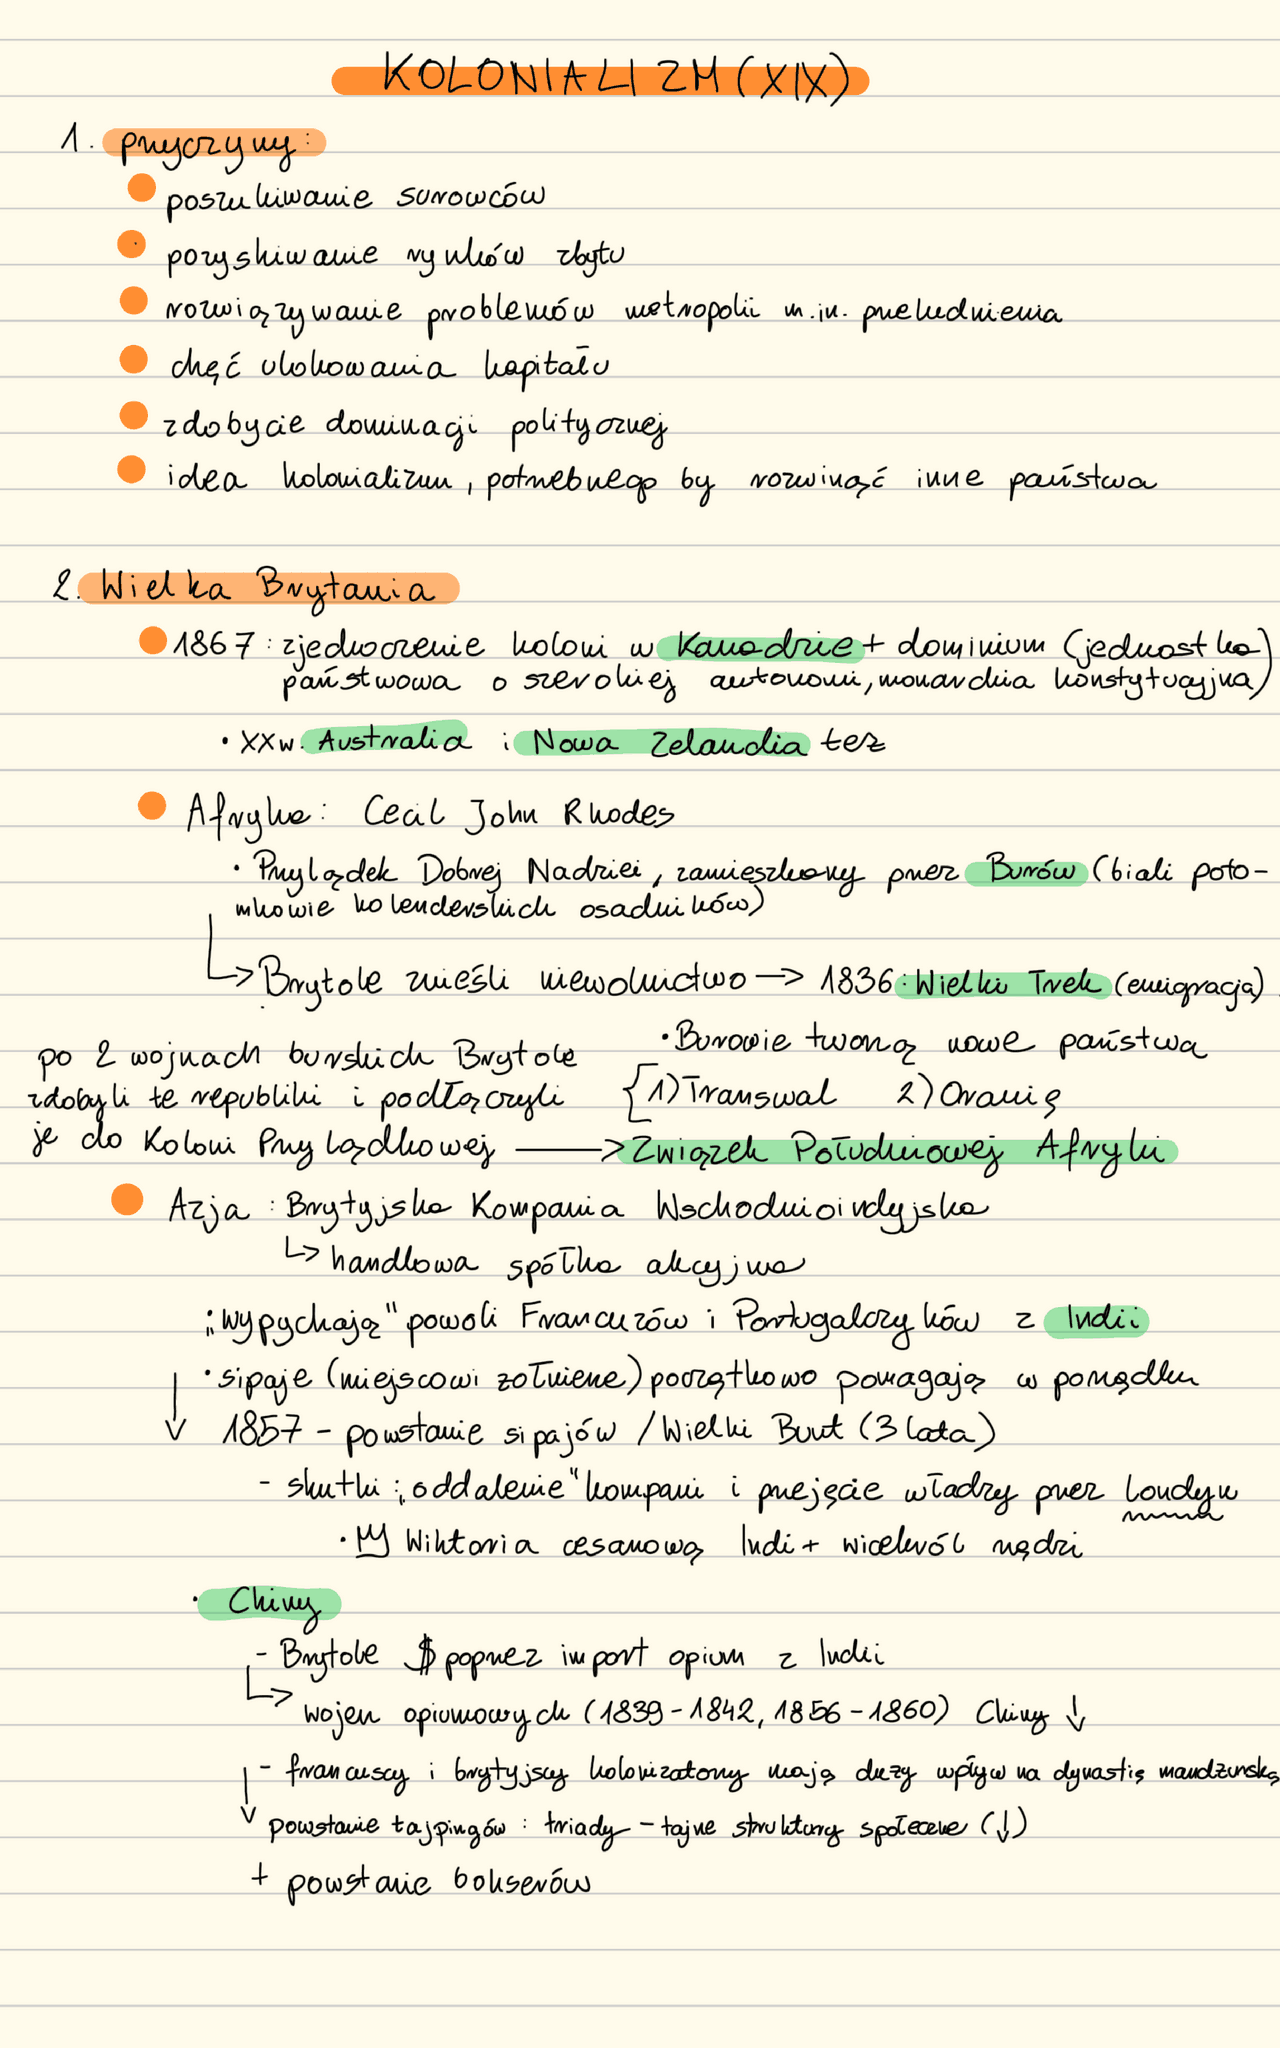 KOLONIALIZM (XIX)
1. przyczyny:
poszukiwanie surowców
pozyskiwanie rynków zbytu
rozwiązywanie problemów metropolii m.in. przeludnienia
chęć ulokowania kapitału
zdobycie dominacji politycznej
idea kolonializmu, potrzebnego by rozwinąć inne państwa
2. Wielka Brytania
1867: zjednoczenie koloni w Kanadzie + dominium (jednostka
państwowa o szerokiej autonomi, monarchia konstytucyjna)
• XXw. Australia i Nowa Zelandia też
Afryka: Cecil John Rhodes
• Przylądek Dobrej Nadziei, zamieszkany przez Burów (biali poto-
mkowie holenderskich osadników)
↳ Brytole znieśli niewolnictwo → 1836: Wielki Trek (emigracja)
• Burowie tworzą nowe państwa
{ 1) Transwal 2) Oranię
po 2 wojnach burskich Brytole
zdobyli te republiki i podłączyli
je do Koloni Przylądkowej → Związek Południowej Afryki
Azja: Brytyjska Kompania Wschodnioindyjska
↳ handlowa spółka akcyjna
• „wypychają” powoli Francuzów i Portugalczyków z Indii
• sipaje (miejscowi żołnierze) początkowo pomagają w porządku
↓ 1857 - powstanie sipajów / Wielki Bunt (3 lata)
- skutki: „oddalenie” kompani i przejęcie władzy przez Londyn
• Wiktoria cesarzową Indi + wicekról rządzi
• Chiny
- Brytole $ poprzez import opium z Indii
↳ wojen opiumowych (1839-1842, 1856-1860) Chiny ↓
- francuscy i brytyjscy kolonizatorzy mają duży wpływ na dynastię mandżurską
↓ powstanie tajpingów: triady - tajne struktury społeczne (↓)
+ powstanie bokserów